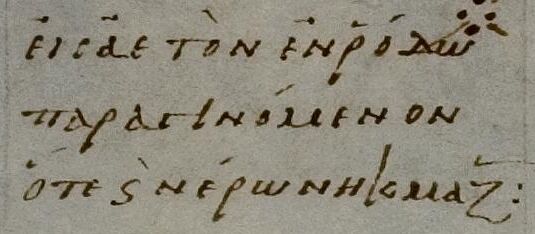 ἐιςἄε τὸν ἐν ῥόδω
παραγινόμενον
ὅτε ς̀ νέρων ἠκμαζ: